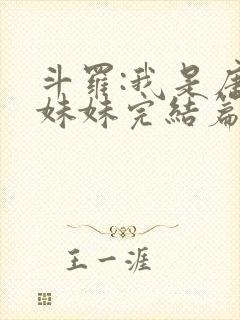 斗罗:我是唐
妹妹完结篇
王一涯